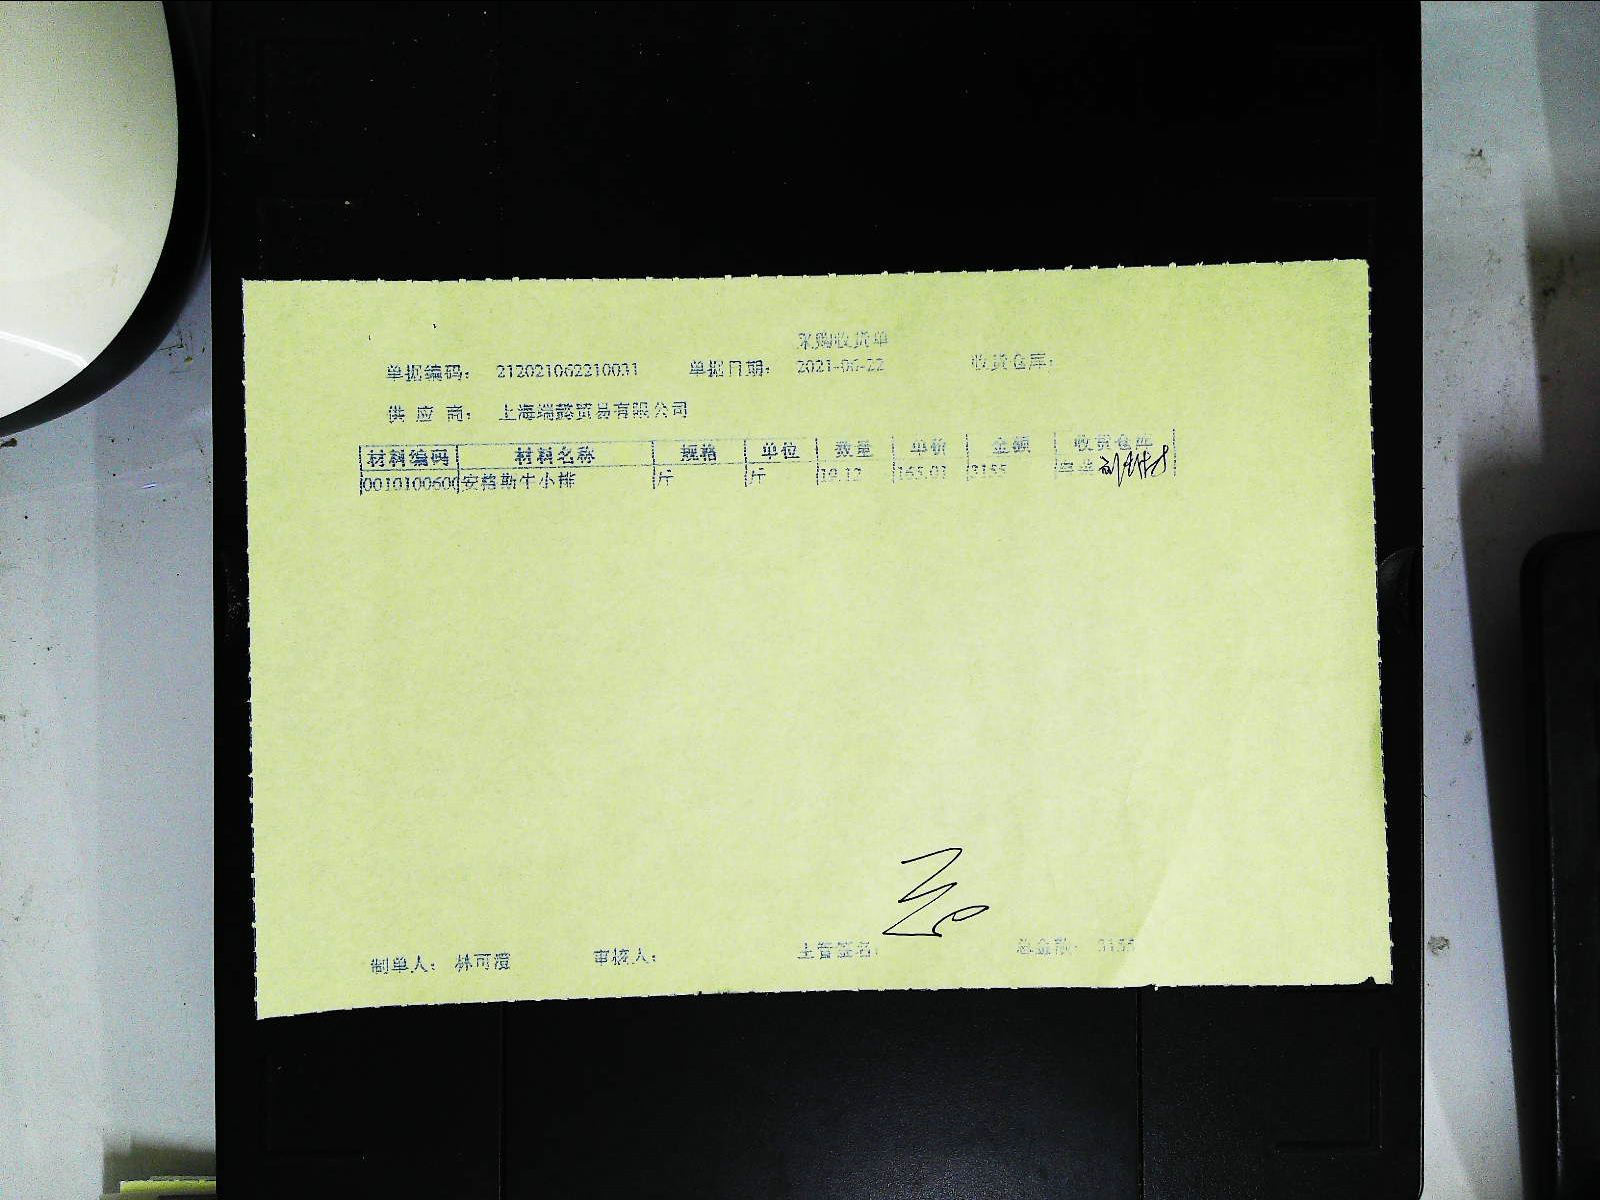 采购收货单
单据编码： 212021062210031 单据日期： 2021-06-22 收货仓库：
供 应 商： 上海端懿贸易有限公司
材料编码 材料名称 规格 单位 数量 单价 金额 收货仓库
0010100600 安格斯牛小排 斤 斤 19.12 165.01 3155
制单人： 林可澄 审核人： 主管签名： 总金额： 3155